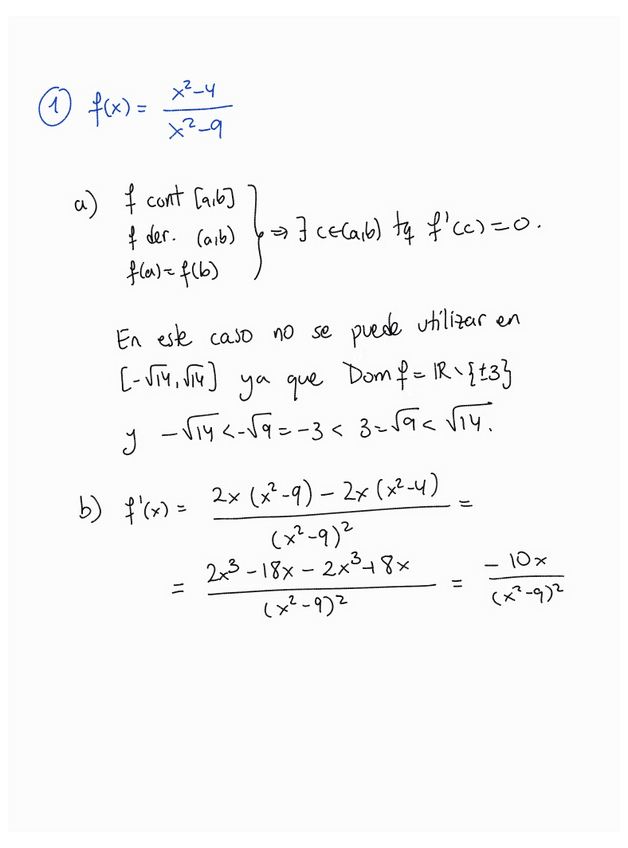 ① f(x) = (x²-4)/(x²-9)
a) f cont [a,b]
f der. (a,b)
f(a) = f(b)
} ⇒ ∃ c∈(a,b) tq f'(c)=0.
En este caso no se puede utilizar en
[-√14, √14] ya que Dom f = ℝ \ {±3}
y -√14 < -√9 = -3 < 3 = √9 < √14.
b) f'(x) = (2x(x²-9) - 2x(x²-4))/(x²-9)² =
= (2x³ - 18x - 2x³ + 8x)/(x²-9)² = (-10x)/(x²-9)²